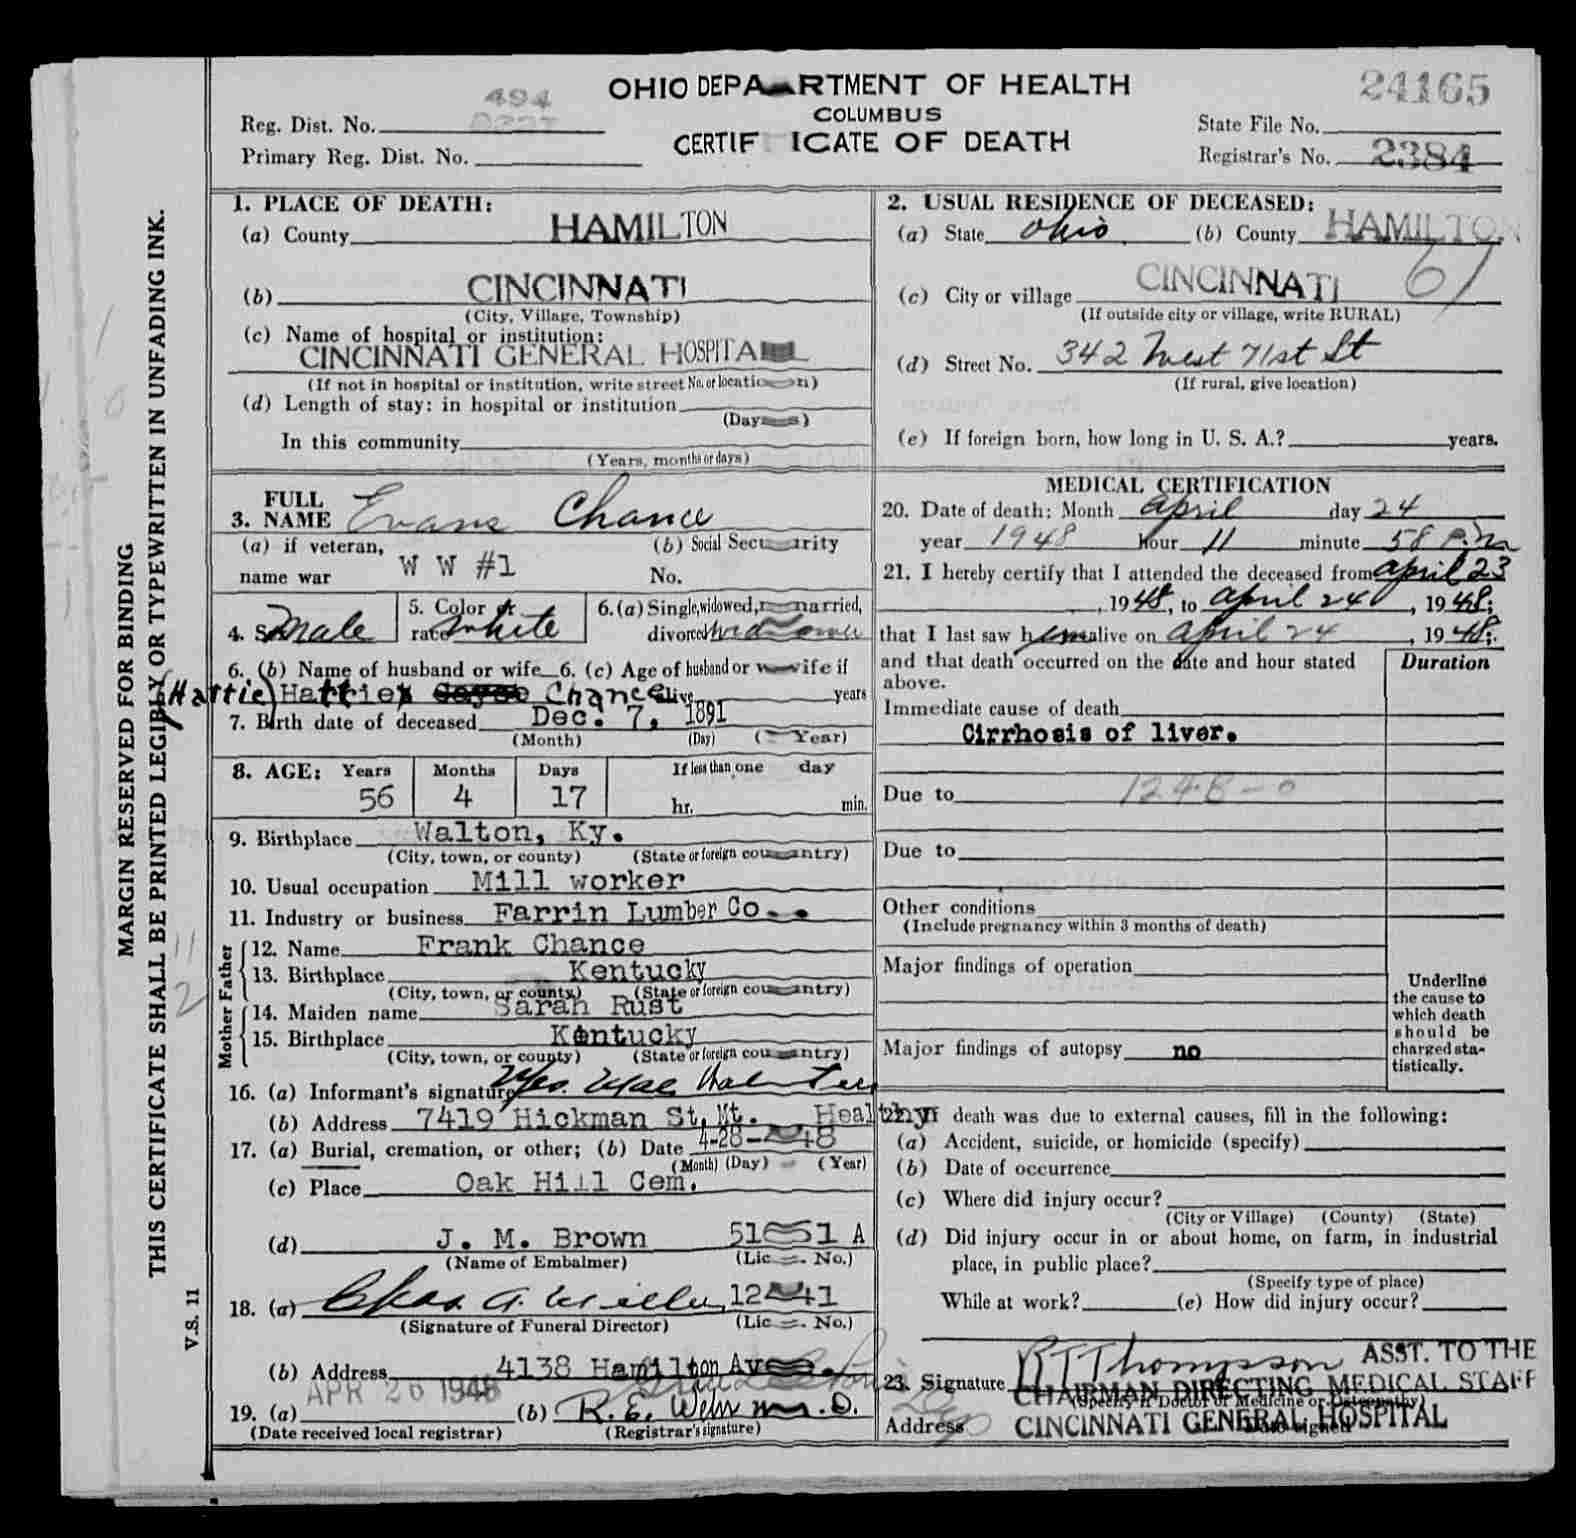 OHIO DEPARTMENT OF HEALTH
COLUMBUS
CERTIFICATE OF DEATH
24165
Reg. Dist. No. 494
Primary Reg. Dist. No.
State File No.
Registrar's No. 2384
MARGIN RESERVED FOR BINDING
THIS CERTIFICATE SHALL BE PRINTED LEGIBLY OR TYPEWRITTEN IN UNFADING INK.
V.S. 11
1. PLACE OF DEATH:
(a) County HAMILTON
(b) CINCINNATI
(City, Village, Township)
(c) Name of hospital or institution:
CINCINNATI GENERAL HOSPITAL
(If not in hospital or institution, write street No. or location)
(d) Length of stay: in hospital or institution
(Days)
In this community
(Years, months or days)
2. USUAL RESIDENCE OF DECEASED:
(a) State Ohio (b) County HAMILTON
(c) City or village CINCINNATI 61
(If outside city or village, write RURAL)
(d) Street No. 342 West 71st St
(If rural, give location)
(e) If foreign born, how long in U. S. A.? years.
3. FULL NAME Evans Chance
(a) if veteran, name war W W #1
(b) Social Security No.
4. Sex Male
5. Color or race White
6. (a) Single, widowed, married, divorced
6. (b) Name of husband or wife 6. (c) Age of husband or wife if
(Hattie) Hattie Chance alive years
7. Birth date of deceased Dec. 7, 1891
(Month) (Day) (Year)
8. AGE: Years Months Days If less than one day
56 4 17 hr. min.
9. Birthplace Walton, Ky.
(City, town, or county) (State or foreign country)
10. Usual occupation Mill worker
11. Industry or business Farrin Lumber Co.
Father
12. Name Frank Chance
13. Birthplace Kentucky
(City, town, or county) (State or foreign country)
Mother
14. Maiden name Sarah Rust
15. Birthplace Kentucky
(City, town, or county) (State or foreign country)
16. (a) Informant's signature Mrs. Mae
(b) Address 7419 Hickman St, Mt. Healthy
17. (a) Burial, cremation, or other; (b) Date 4-28-48
(Month) (Day) (Year)
(c) Place Oak Hill Cem.
(d) J. M. Brown 5151 A
(Name of Embalmer) (Lic. No.)
18. (a) Chas. A. Miller 1241
(Signature of Funeral Director) (Lic. No.)
(b) Address 4138 Hamilton Ave.
19. (a) APR 26 1948 (b) R. E. Wehr M.D.
(Date received local registrar) (Registrar's signature)
MEDICAL CERTIFICATION
20. Date of death: Month April day 24
year 1948 hour 11 minute 58 P.m
21. I hereby certify that I attended the deceased from April 23
, 1948, to April 24, 1948;
that I last saw him alive on April 24, 1948;
and that death occurred on the date and hour stated above.
Duration
Immediate cause of death
Cirrhosis of liver.
Due to 124B-0
Due to
Other conditions
(Include pregnancy within 3 months of death)
Major findings of operation
Major findings of autopsy no
Underline the cause to which death should be charged statistically.
22. If death was due to external causes, fill in the following:
(a) Accident, suicide, or homicide (specify)
(b) Date of occurrence
(c) Where did injury occur?
(City or Village) (County) (State)
(d) Did injury occur in or about home, on farm, in industrial
place, in public place?
(Specify type of place)
While at work? (e) How did injury occur?
23. Signature R T Thompson ASST. TO THE
CHAIRMAN DIRECTING MEDICAL STAFF
(Specify if Doctor of Medicine or Osteopathy)
Address CINCINNATI GENERAL HOSPITAL
Date signed